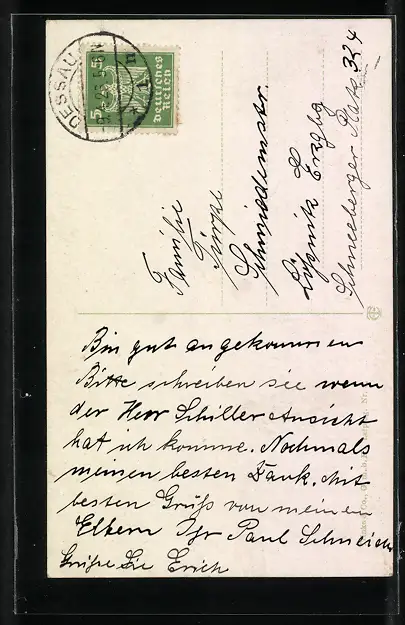 DESSAU
5 5
Deutsches
Reich
Familie
Türpe
Schmiedemstr.
Lößnitz Erzgbg
Schneeberger Platz 324
Bin gut angekommen
Bitte schreiben sie wenn
der Herr Schiller Ansicht
hat ich komme. Nochmals
meinen besten Dank. Mit
besten Grüß von meinen
Eltern Ihr Paul Schneider
Grüße Sie Erich